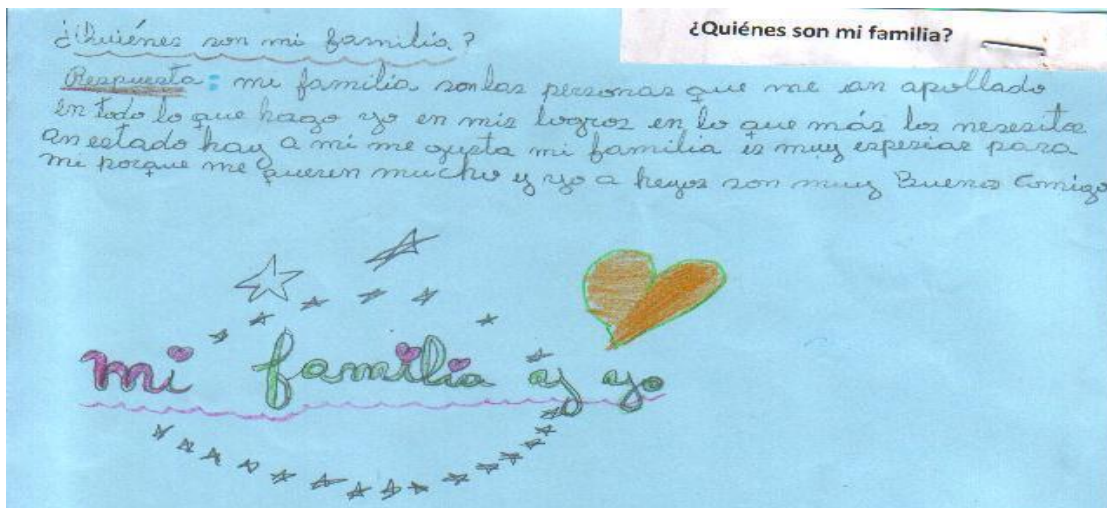 ¿Quiénes son mi familia?
¿Quiénes son mi familia?
Respuesta: mi familia son las personas que me an apollado
en todo lo que hago yo en mis logros en lo que más los nesesito
an estado hay a mi me gusta mi familia is muy espesiar para
mi porque me queren mucho y yo a heyos son muy Buenos Comigo
mi familia y yo